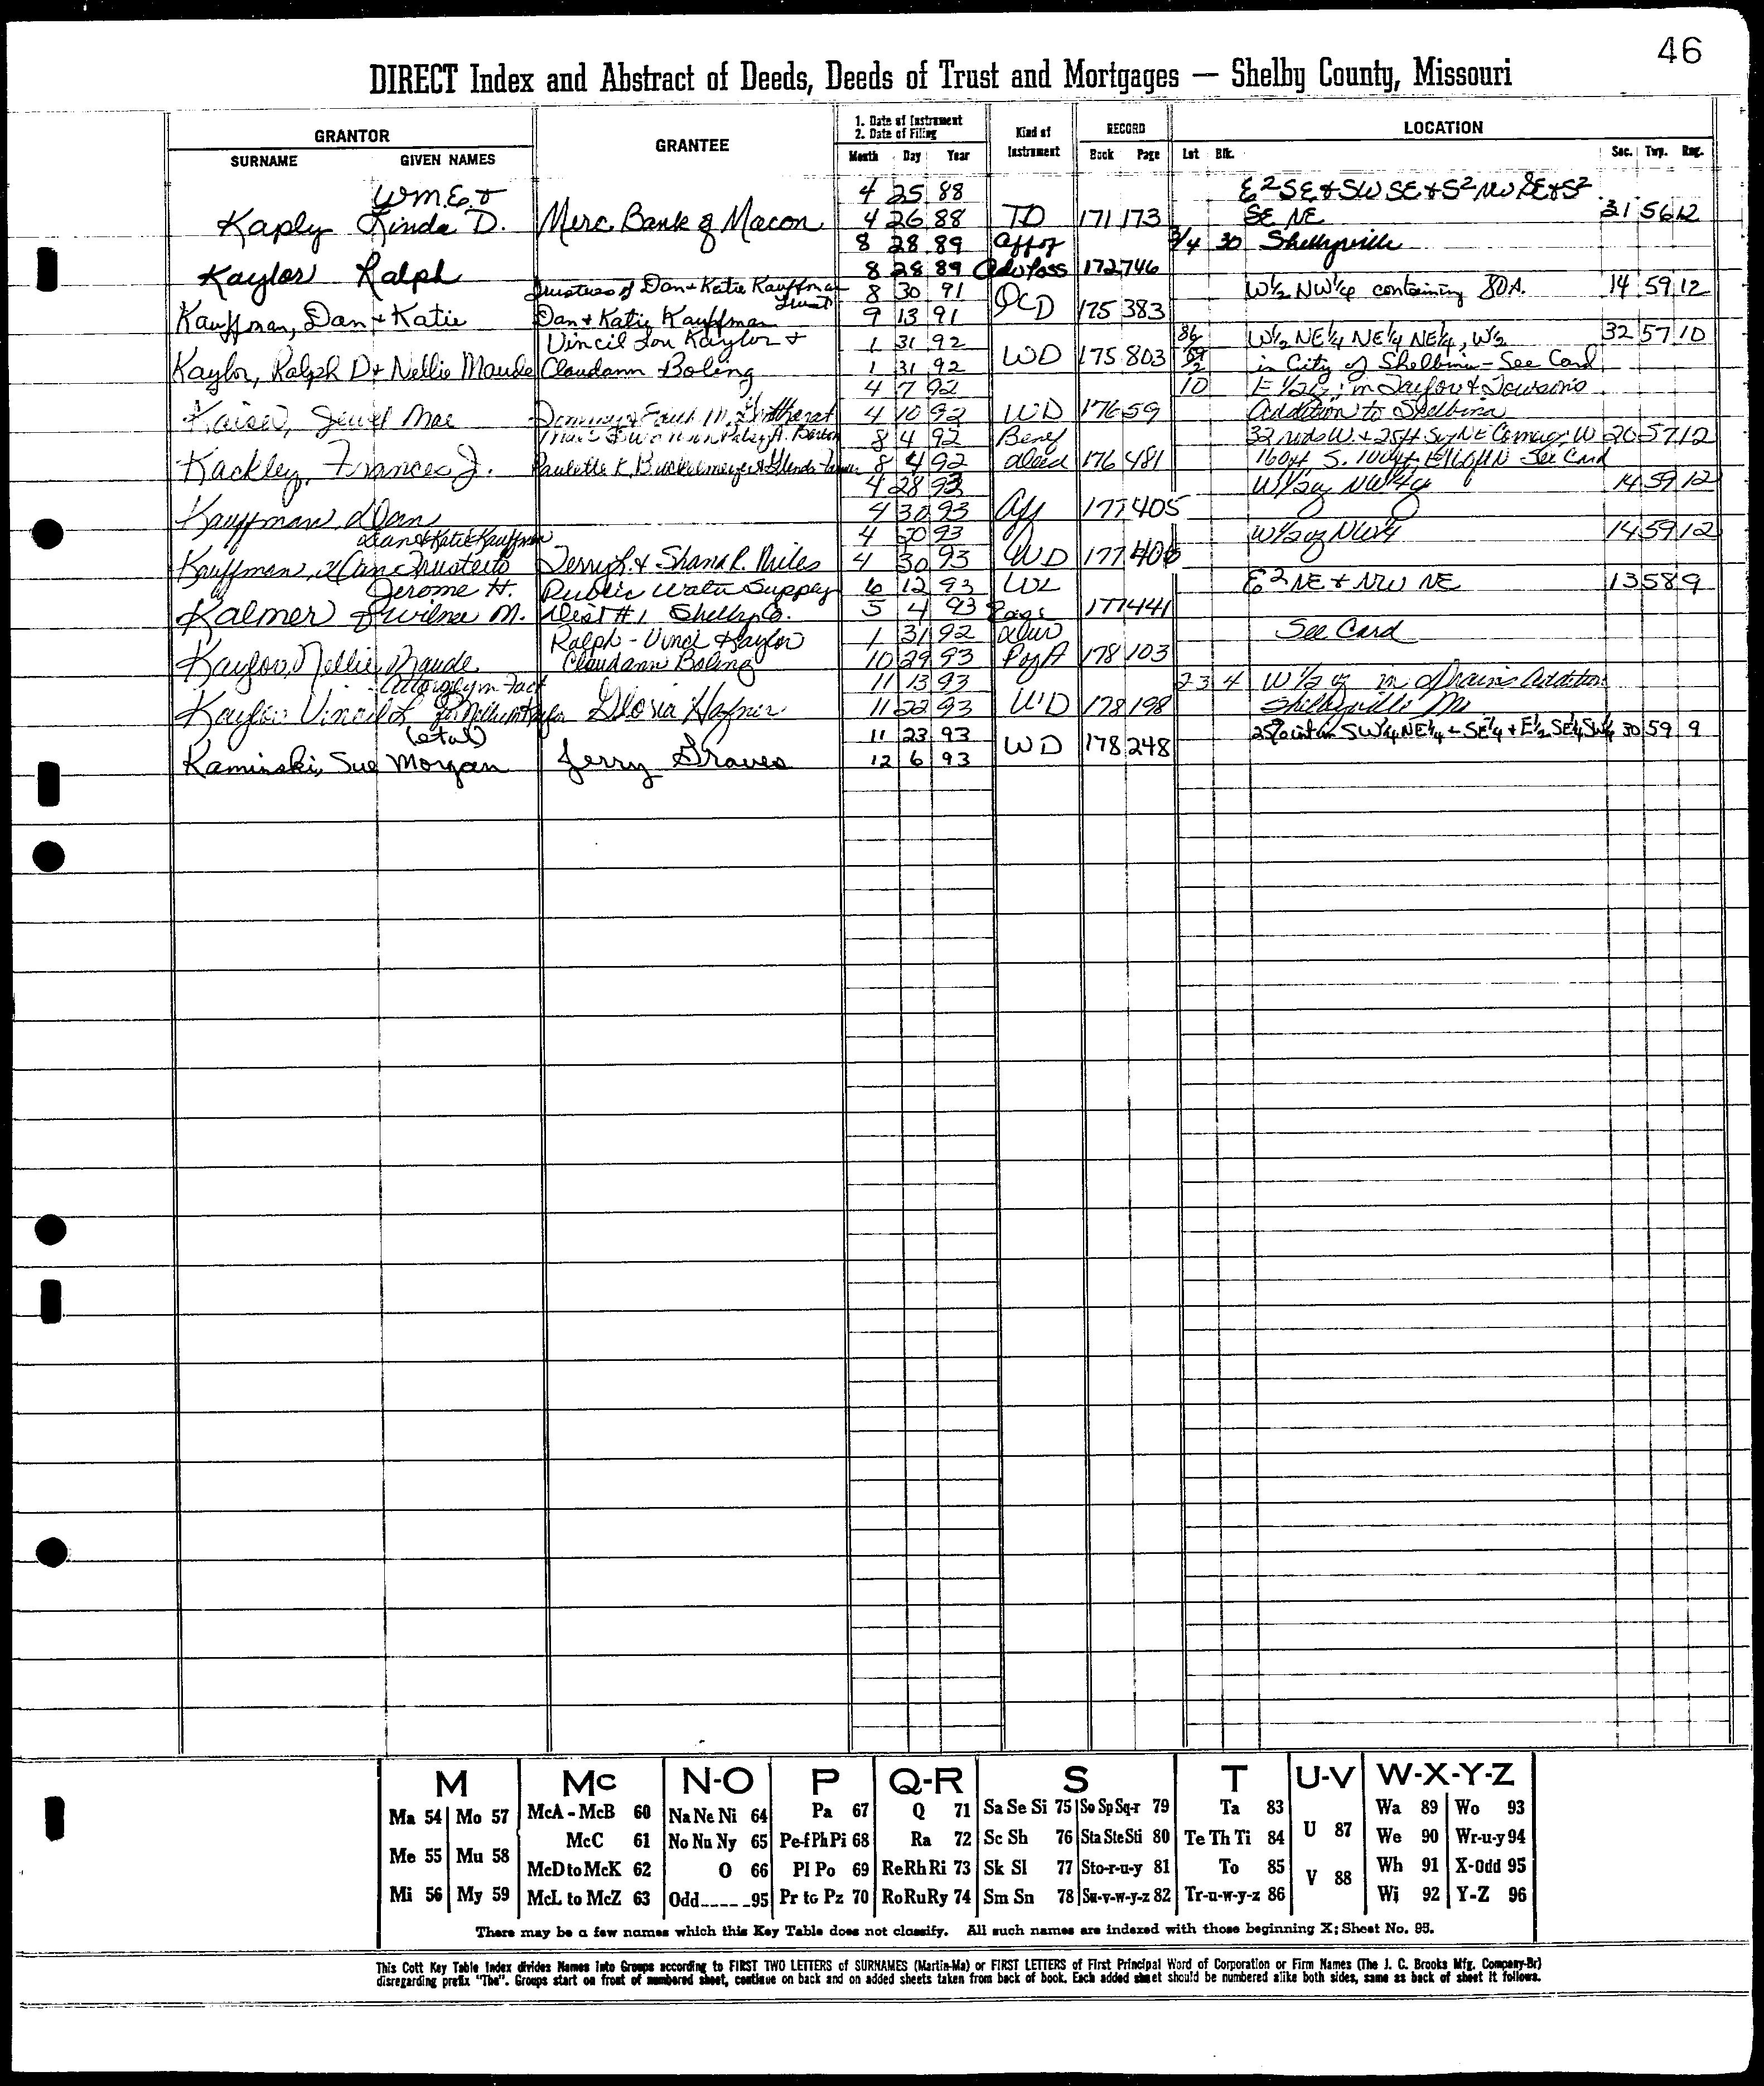 46
DIRECT Index and Abstract of Deeds, Deeds of Trust and Mortgages — Shelby County, Missouri
GRANTOR GRANTEE 1. Date of Instrument 2. Date of Filing Kind of Instrument RECORD LOCATION
SURNAME GIVEN NAMES Month Day Year Book Page Lot Blk. Sec. Twp. Rng.
Wm. E. & 4 25 88 E² SE & SW SE & S² NW SE & S²
Kaply Linda D. Merc. Bank of Macon 4 26 88 TD 171 173 SE NE 31 56 12
8 28 89 Aff of 3/4 30 Shelbyville
Kaylor Ralph 8 28 89 Adv Poss 172 746
Trustees of Dan + Katie Kauffman Trust 8 30 91 W½ NW¼ containing 80 A. 14 59 12
Kauffman, Dan + Katie Dan + Katie Kauffman 9 13 91 QCD 175 383
Vincil Lon Kaylor + 1 31 92 86 W½ NE¼ NE¼ NE¼, W½ 32 57 10
Kaylor, Ralph D + Nellie Maude Claudann Boling 1 31 92 WD 175 803 in City of Shelbina - See Card
4 7 92 10 E 1/2 of in Taylor & Towson's
Kaiser, Jewel Mae 4 10 92 WD 176 59 Addition to Shelbina
8 4 92 Benef 32 rods W. + 25 ft S of NE Corner W 20 57 12
Kackley, Frances J. Paulette K. 8 4 92 deed 176 481 160 ft S. See Card
4 28 93 W 1/2 of NW 1/4 14 59 12
Kauffman Dan 4 30 93 Aff 177 405
Dan & Katie Kauffman 4 30 93 W 1/2 of NW 1/4 14 59 12
Kauffman, Dan Trustee Terry L. & Shana R. Miles 4 30 93 WD 177 406
Jerome H. Public Water Supply 6 12 93 E² NE & NW NE 13 58 9
Kalmer & Wilma M. Dist #1 Shelby Co. 5 4 93 177 441
Ralph - Vincil Kaylor 1 31 92 Dur See Card
Kaylor, Nellie Maude Claudann Boling 10 29 93 P of A 178 103
Attorney in Fact 11 13 93 23 4 W 1/2 of in Addition
Kaylor Vincil L. for Nellie M Kaylor Gloria Hafner 11 22 93 WD 178 198 Shelbyville Mo
(etal) 11 23 93 in SW¼ NE¼ + SE¼ + E½ SE¼ SW¼ 30 59 9
Kaminski, Sue Morgan Jerry Graves 12 6 93 WD 178 248
M Mc N-O P Q-R S T U-V W-X-Y-Z
Ma 54 Mo 57 McA - McB 60 Na Ne Ni 64 Pa 67 Q 71 Sa Se Si 75 So Sp Sq-r 79 Ta 83 U 87 Wa 89 Wo 93
Me 55 Mu 58 McC 61 No Nu Ny 65 Pe-f Ph Pi 68 Ra 72 Sc Sh 76 Sta Ste Sti 80 Te Th Ti 84 V 88 We 90 Wr-u-y 94
Mi 56 My 59 McD to McK 62 O 66 Pl Po 69 Re Rh Ri 73 Sk Sl 77 Sto-r-u-y 81 To 85 Wh 91 X-Odd 95
McL to McZ 63 Odd 95 Pr to Pz 70 Ro Ru Ry 74 Sm Sn 78 Su-v-w-y-z 82 Tr-u-w-y-z 86 Wi 92 Y-Z 96
There may be a few names which this Key Table does not classify. All such names are indexed with those beginning X; Sheet No. 95.
This Cott Key Table Index divides Names Into Groups according to FIRST TWO LETTERS of SURNAMES (Martin-Ma) or FIRST LETTERS of First Principal Word of Corporation or Firm Names (The J. C. Brooks Mfg. Company-Br)
disregarding prefix "The". Groups start on front of numbered sheet, continue on back and on added sheets taken from back of book. Each added sheet should be numbered alike both sides, same as back of sheet it follows.